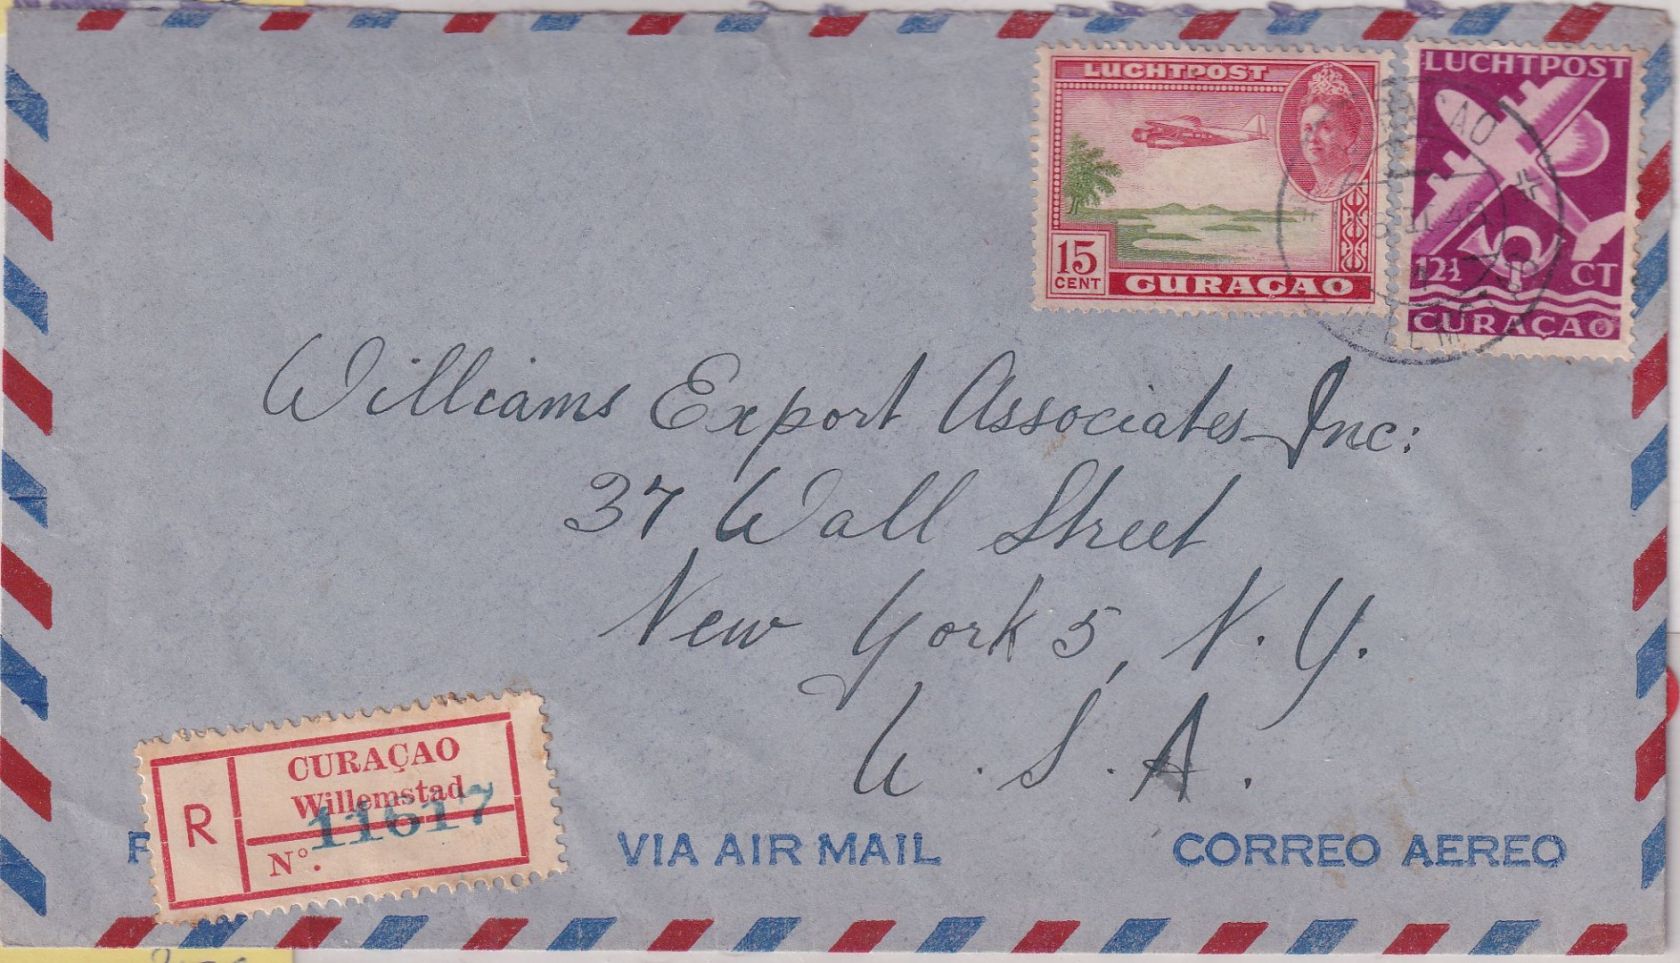 LUCHTPOST
15
CENT
CURAÇAO
LUCHTPOST
12½ CT
CURAÇAO
Williams Export Associates Inc:
37 Wall Street
New York 5, N.Y.
U.S.A.
CURAÇAO
Willemstad
R
11617
Nº.
VIA AIR MAIL
CORREO AEREO